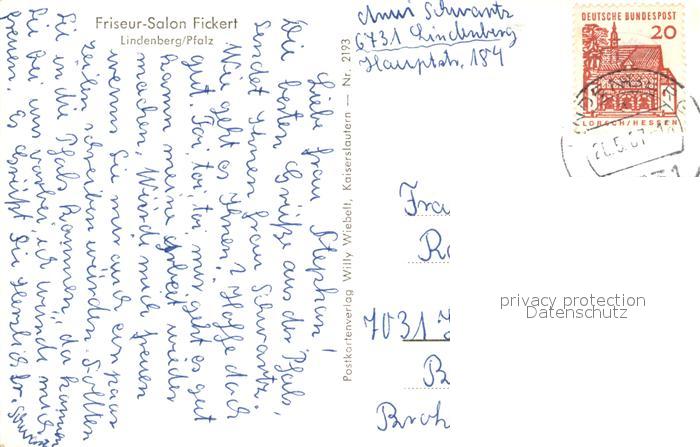 Friseur-Salon Fickert
Lindenberg/Pfalz
Liebe Frau Stephan!
Die besten Grüße aus der Pfalz,
sendet Ihnen Frau Schwantz.
Wie geht es Ihnen? Hoffe doch
gut. Toi, toi, toi, mir geht es gut
kann meine Arbeit wieder
machen. Würde mich freuen
wenn Sie mir auch ein paar
Zeilen schreiben würden. Sollten
Sie in die Pfalz kommen, da kommen
Sie bei uns vorbei, ich würde mich
freuen. Es grüßt Sie herzlich Fr. Schwan
Postkartenverlag Willy Wiebelt, Kaiserslautern — Nr. 2193
Anni Schwantz
6731 Lindenberg
Hauptstr. 184
DEUTSCHE BUNDESPOST
20
LORSCH/HESSEN
Fra
7031
privacy protection
Datenschutz